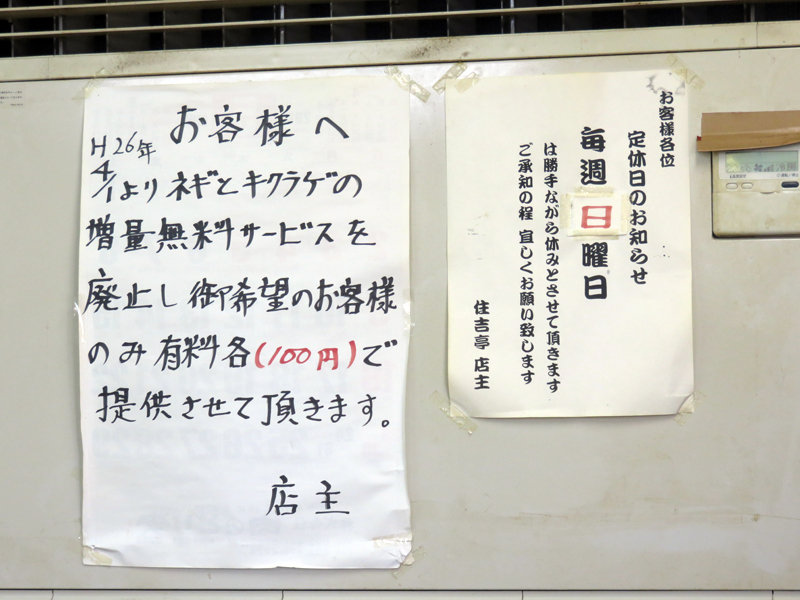 お客様へ
H26年
4/1よりネギとキクラゲの
増量無料サービスを
廃止し御希望のお客様
のみ有料各(100円)で
提供させて頂きます。
店主
お客様各位
定休日のお知らせ
毎週日曜日
は勝手ながら休みとさせて頂きます
ご承知の程 宜しくお願い致します
住吉亭 店主